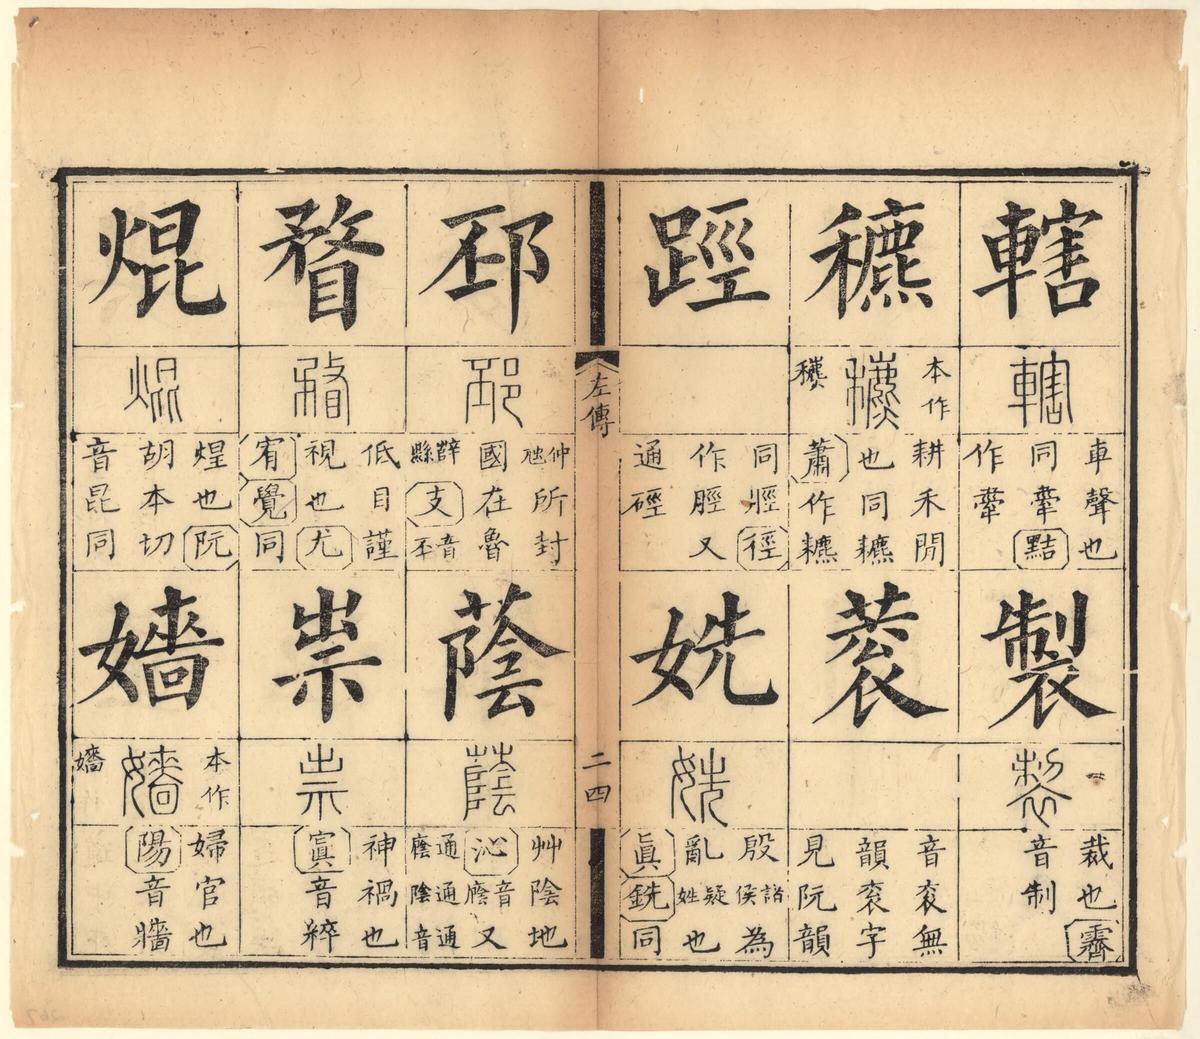 轄
轄
車聲也
同舝黠
作舝
製
製
裁也霽
音制
穮
本作
穮
穮
耕禾閒
也同穮
蕭作穮
蔉
音衮無
韻衮字
見阮韻
踁
同脛徑
作脛又
通硜
姺
姺
殷諸侯為
亂疑姓也
眞銑同
左傳
二四
邳
邳
仲虺所封
國在魯
薛縣支音丕
蔭
蔭
艸陰地
沁音廕又
通廕通陰通音
瞀
瞀
低目謹
視也尤
宥覺同
祟
祟
神禍也
寘音粹
焜
焜
煌也阮
胡本切
音昆同
嬙
本作
嬙
嬙
婦官也
陽音牆